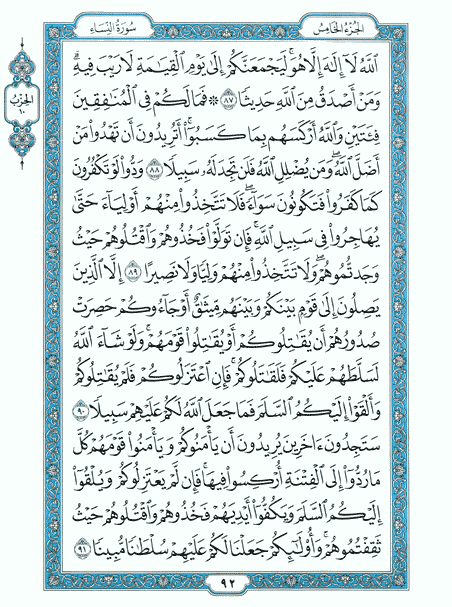 الجزء الخامس
سورة النساء
ٱللَّهُ لَآ إِلَٰهَ إِلَّا هُوَۚ لَيَجْمَعَنَّكُمْ إِلَىٰ يَوْمِ ٱلْقِيَٰمَةِ لَا رَيْبَ فِيهِۗ
وَمَنْ أَصْدَقُ مِنَ ٱللَّهِ حَدِيثًا ٨٧ ۞ فَمَا لَكُمْ فِى ٱلْمُنَٰفِقِينَ
فِئَتَيْنِ وَٱللَّهُ أَرْكَسَهُم بِمَا كَسَبُوٓا۟ۚ أَتُرِيدُونَ أَن تَهْدُوا۟ مَنْ
أَضَلَّ ٱللَّهُۖ وَمَن يُضْلِلِ ٱللَّهُ فَلَن تَجِدَ لَهُۥ سَبِيلًا ٨٨ وَدُّوا۟ لَوْ تَكْفُرُونَ
كَمَا كَفَرُوا۟ فَتَكُونُونَ سَوَآءًۖ فَلَا تَتَّخِذُوا۟ مِنْهُمْ أَوْلِيَآءَ حَتَّىٰ
يُهَاجِرُوا۟ فِى سَبِيلِ ٱللَّهِۚ فَإِن تَوَلَّوْا۟ فَخُذُوهُمْ وَٱقْتُلُوهُمْ حَيْثُ
وَجَدتُّمُوهُمْۖ وَلَا تَتَّخِذُوا۟ مِنْهُمْ وَلِيًّا وَلَا نَصِيرًا ٨٩ إِلَّا ٱلَّذِينَ
يَصِلُونَ إِلَىٰ قَوْمٍۭ بَيْنَكُمْ وَبَيْنَهُم مِّيثَٰقٌ أَوْ جَآءُوكُمْ حَصِرَتْ
صُدُورُهُمْ أَن يُقَٰتِلُوكُمْ أَوْ يُقَٰتِلُوا۟ قَوْمَهُمْۚ وَلَوْ شَآءَ ٱللَّهُ
لَسَلَّطَهُمْ عَلَيْكُمْ فَلَقَٰتَلُوكُمْۚ فَإِنِ ٱعْتَزَلُوكُمْ فَلَمْ يُقَٰتِلُوكُمْ
وَأَلْقَوْا۟ إِلَيْكُمُ ٱلسَّلَمَ فَمَا جَعَلَ ٱللَّهُ لَكُمْ عَلَيْهِمْ سَبِيلًا ٩٠
سَتَجِدُونَ ءَاخَرِينَ يُرِيدُونَ أَن يَأْمَنُوكُمْ وَيَأْمَنُوا۟ قَوْمَهُمْ كُلَّ
مَا رُدُّوٓا۟ إِلَى ٱلْفِتْنَةِ أُرْكِسُوا۟ فِيهَاۚ فَإِن لَّمْ يَعْتَزِلُوكُمْ وَيُلْقُوٓا۟
إِلَيْكُمُ ٱلسَّلَمَ وَيَكُفُّوٓا۟ أَيْدِيَهُمْ فَخُذُوهُمْ وَٱقْتُلُوهُمْ حَيْثُ
ثَقِفْتُمُوهُمْۚ وَأُو۟لَٰٓئِكُمْ جَعَلْنَا لَكُمْ عَلَيْهِمْ سُلْطَٰنًا مُّبِينًا ٩١
الحزب
١٠
٩٢